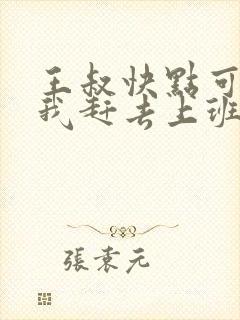 王叔快點可
我赶去上班
張袁元